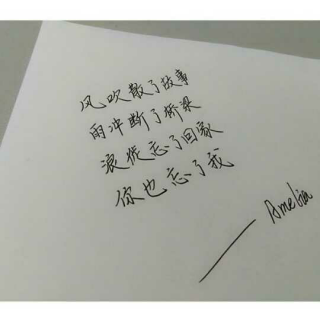 风吹散了故事
雨冲断了桥梁
浪花忘了回家
你也忘了我
—— Amelia